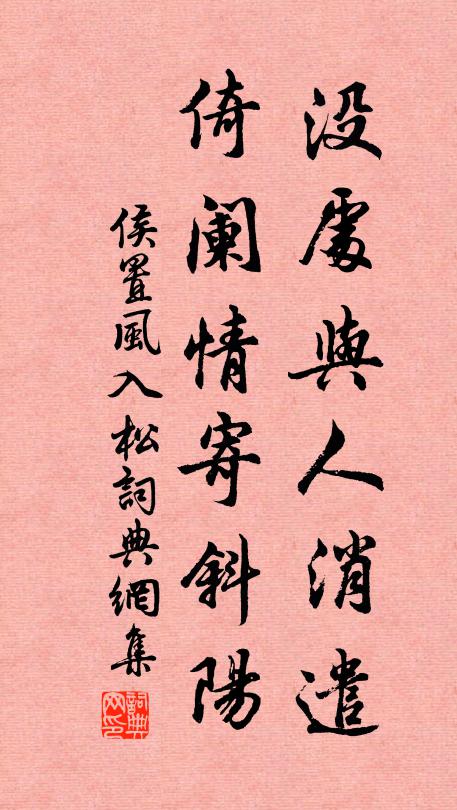 沒處與人消遣
倚闌情寄斜陽
侯置風入松詞典網集
詞典網印